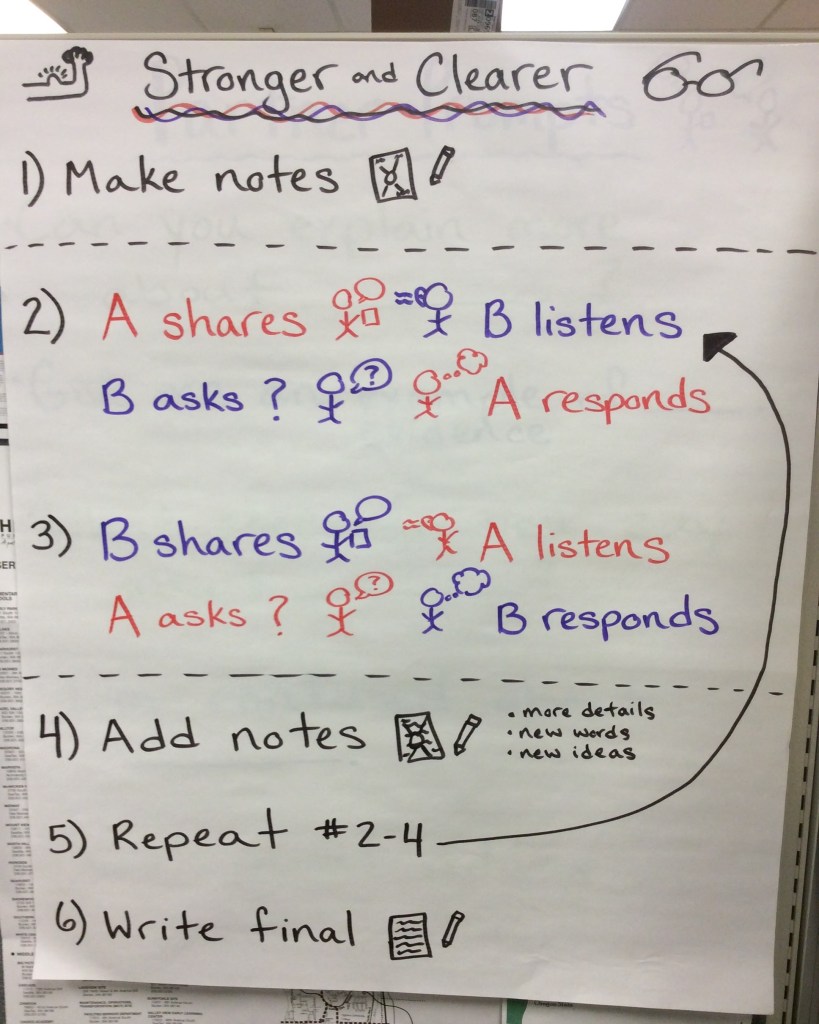 Stronger and Clearer
1) Make notes
2) A shares B listens
?
B asks ? A responds
3) B shares A listens
?
A asks ? B responds
4) Add notes
• more details
• new words
• new ideas
5) Repeat #2-4
6) Write final